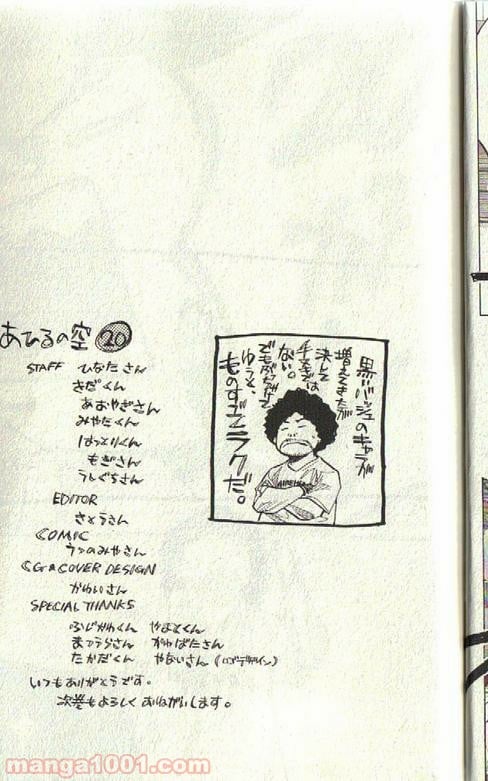 あひるの空 20
STAFF ひなたさん
さだくん
あおやぎさん
みやたくん
はっとりくん
もぎさん
うしぐちさん
EDITOR
さとうさん
COMIC
うつのみやさん
CG & COVER DESIGN
かわいさん
SPECIAL THANKS
ふじかわくん やまとくん
まつうらさん かわばたさん
たかだくん やおいさん(ロゴデザイン)
いつもありがとうです。
次巻もよろしくおねがいします。
黒バッシュのキャラが
増えてきたが
決して
手ヌキでは
ない。
でもぶっちゃけて
ゆうと、
ものすげーラクだ。
manga1001.com